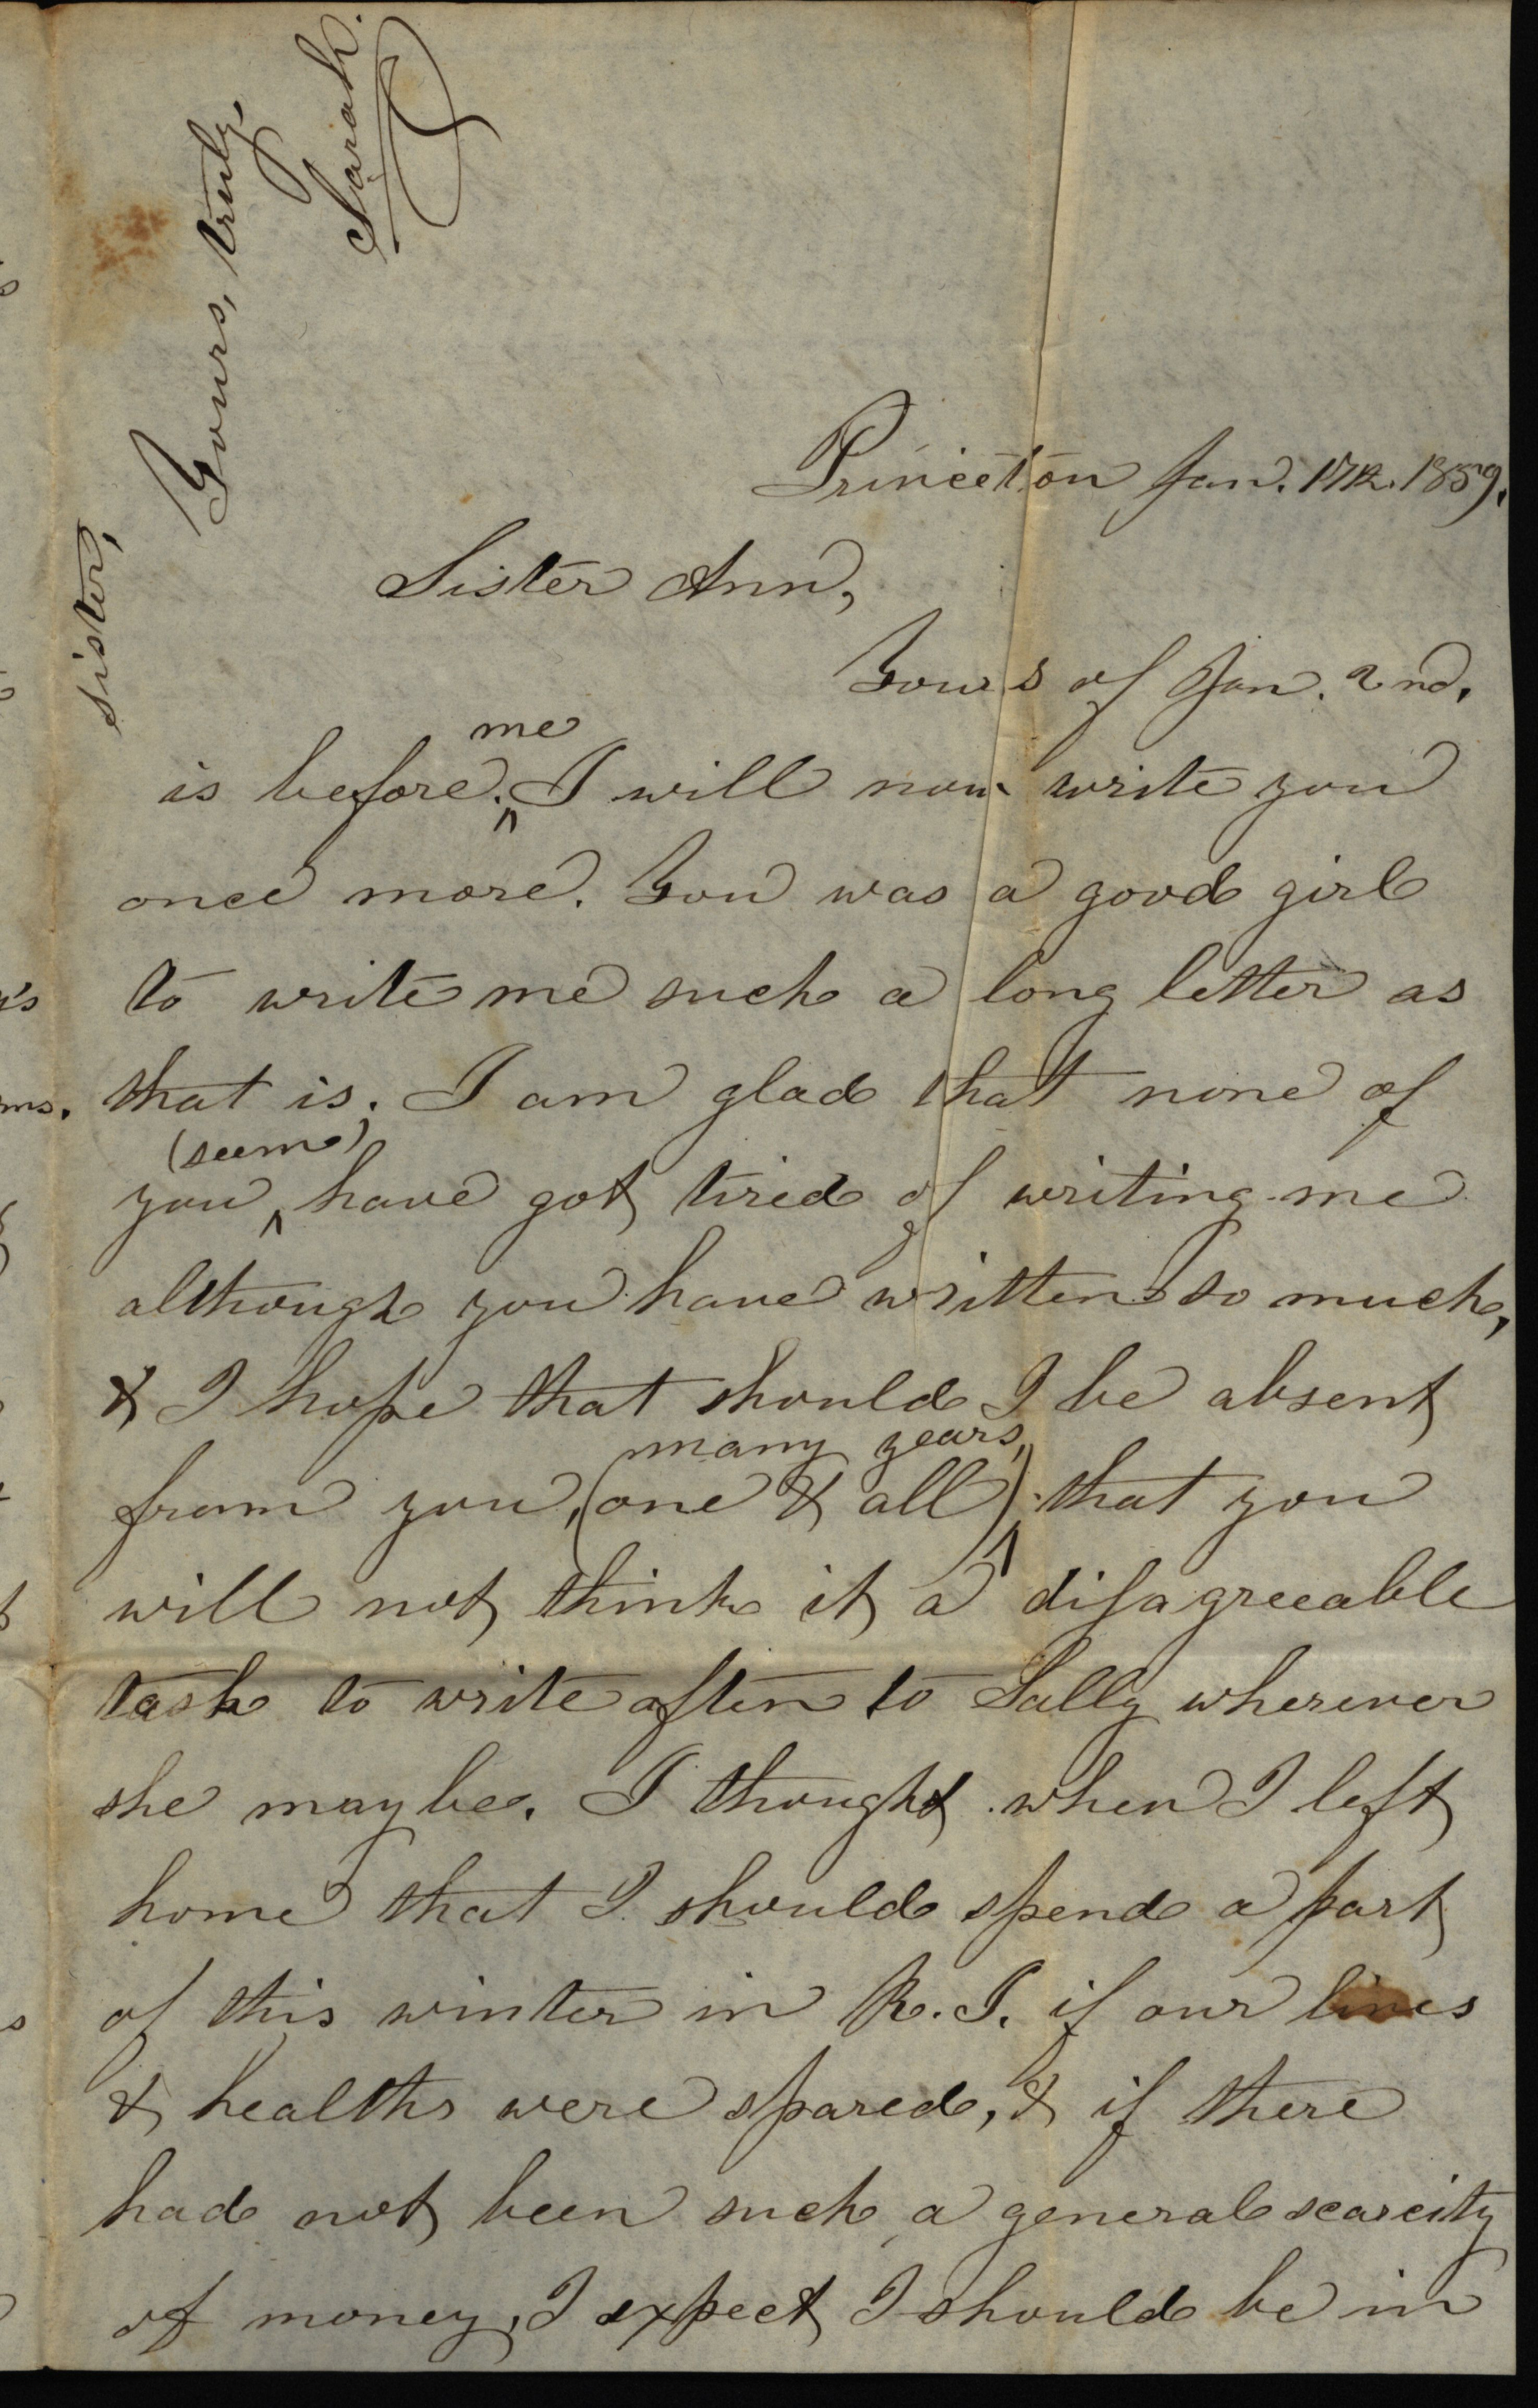 Princeton Jan. 17th. 1859.
Sister Ann,
Yours of Jan. 2nd.
me
is before. ^ I will now write you
once more. You was a good girl
to write me such a long letter as
that is. I am glad that none of
(seem)
you ^ have got tired of writing me
although you have written so much,
& I hope that should I be absent
many years,
from you, (one & all) ^ that you
will not think it a disagreeable
task to write often to Sally wherever
she may be. I thought when I left
home that I should spend a part
of this winter in R. I. if our lives
& healths were spared, & if there
had not been such a general scarcity
of money, I expect I should be in
sister,
Yours, truly,
Sarah.